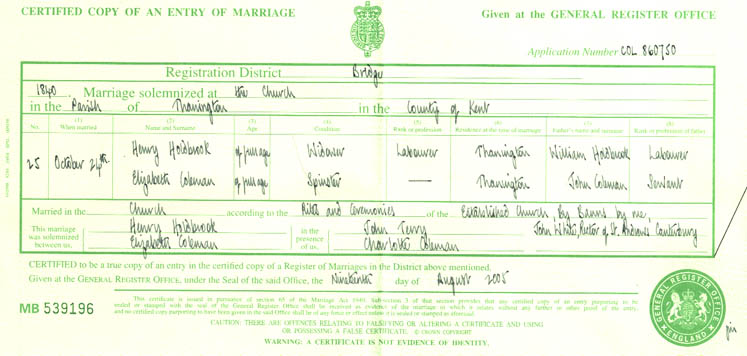 CERTIFIED COPY OF AN ENTRY OF MARRIAGE
Given at the GENERAL REGISTER OFFICE
Application Number COL 860750
Registration District Bridge
1840. Marriage solemnized at the Church
in the Parish of Thanington in the County of Kent
No. When married Name and Surname Age Condition Rank or profession Residence at the time of marriage Father's name and surname Rank or profession of father
25 October 24th Henry Holdbrook of full age Widower Labourer Thanington William Holdbrook Labourer
Elizabeth Coleman of full age Spinster — Thanington John Coleman Servant
Married in the Church according to the Rites and Ceremonies of the Established Church, By Banns by me,
This marriage was solemnized between us, Henry Holdbrook in the presence of us, John Terry John White, Rector of St. Andrews Canterbury
Elizabeth Coleman Charlotte Coleman
CERTIFIED to be a true copy of an entry in the certified copy of a Register of Marriages in the District above mentioned.
Given at the GENERAL REGISTER OFFICE, under the Seal of the said Office, the Nineteenth day of August 2005
MB 539196
This certificate is issued in pursuance of section 65 of the Marriage Act 1949. Sub-section 3 of that section provides that any certified copy of an entry purporting to be
sealed or stamped with the seal of the General Register Office shall be received as evidence of the marriage to which it relates without any further or other proof of the entry,
and no certified copy purporting to have been given in the said Office shall be of any force or effect unless it is sealed or stamped as aforesaid.
CAUTION: THERE ARE OFFENCES RELATING TO FALSIFYING OR ALTERING A CERTIFICATE AND USING
OR POSSESSING A FALSE CERTIFICATE. © CROWN COPYRIGHT
WARNING: A CERTIFICATE IS NOT EVIDENCE OF IDENTITY.
GENERAL REGISTER OFFICE
ENGLAND